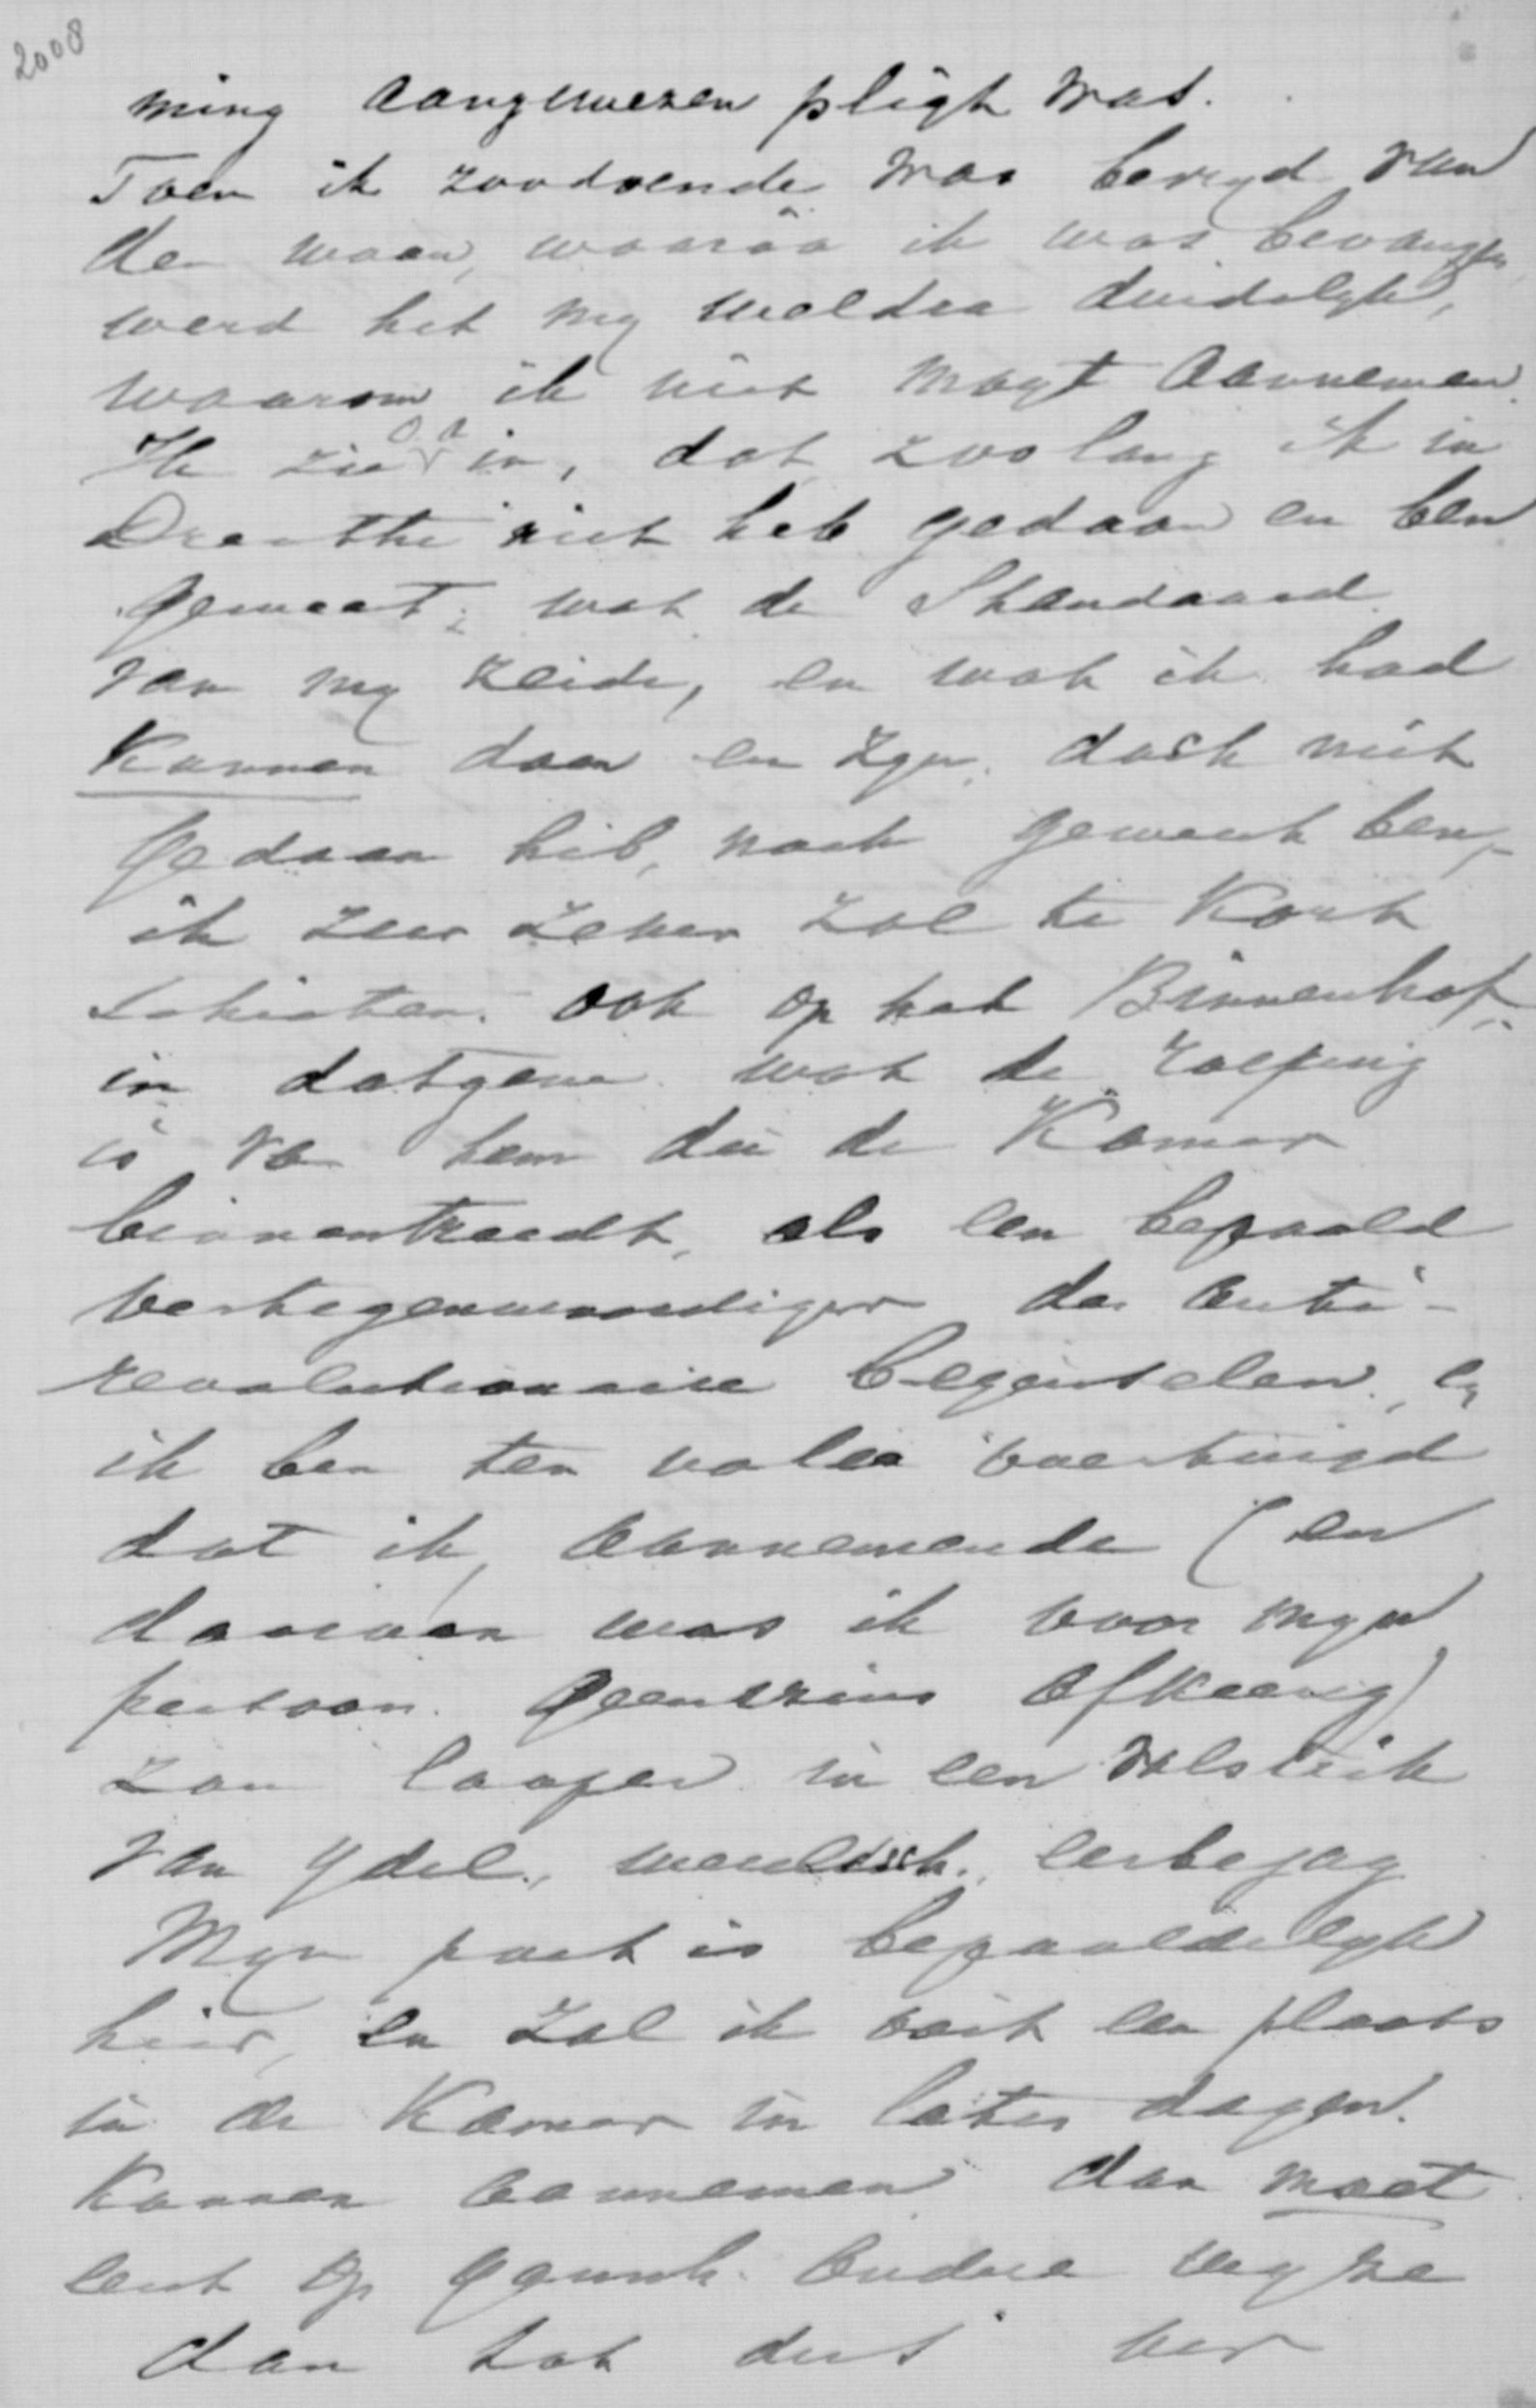 2008
ming aangewezen pligt was.
Toen ik zoodoende was bevryd van
den waan, waarin ik was bevangen
werd het my weldra duidelyk,
waarom ik niet mogt aannemen.
Ik zie in, dat zoolang ik in
Drenthe niet heb gedaan en ben
geweest, wat de Standaard
van my zeide, en wat ik had
kunnen doen en zyn, doch niet
gedaan heb, noch geweest ben,
ik zeer zeker zal te kort
schieten, ook op het Binnenhof,
in datgene wat de roeping
is van hem die de Kamer
binnentreedt, als een bepaald
vertegenwoordiger der anti-
revolutionaire beginselen, en
ik ben ten volle overtuigd
dat ik, aannemende (en
daarvan was ik voor myn
persoon geenszins afkeerig)
zou loopen in een valstrik
van ydel, menschl. eerbejag
Myn post is bepaaldelyk
hier, en zal ik ooit een plaats
in de Kamer in later dagen
kunnen aannemen dan moet
eerst op andere wyze
dan tot dus ver